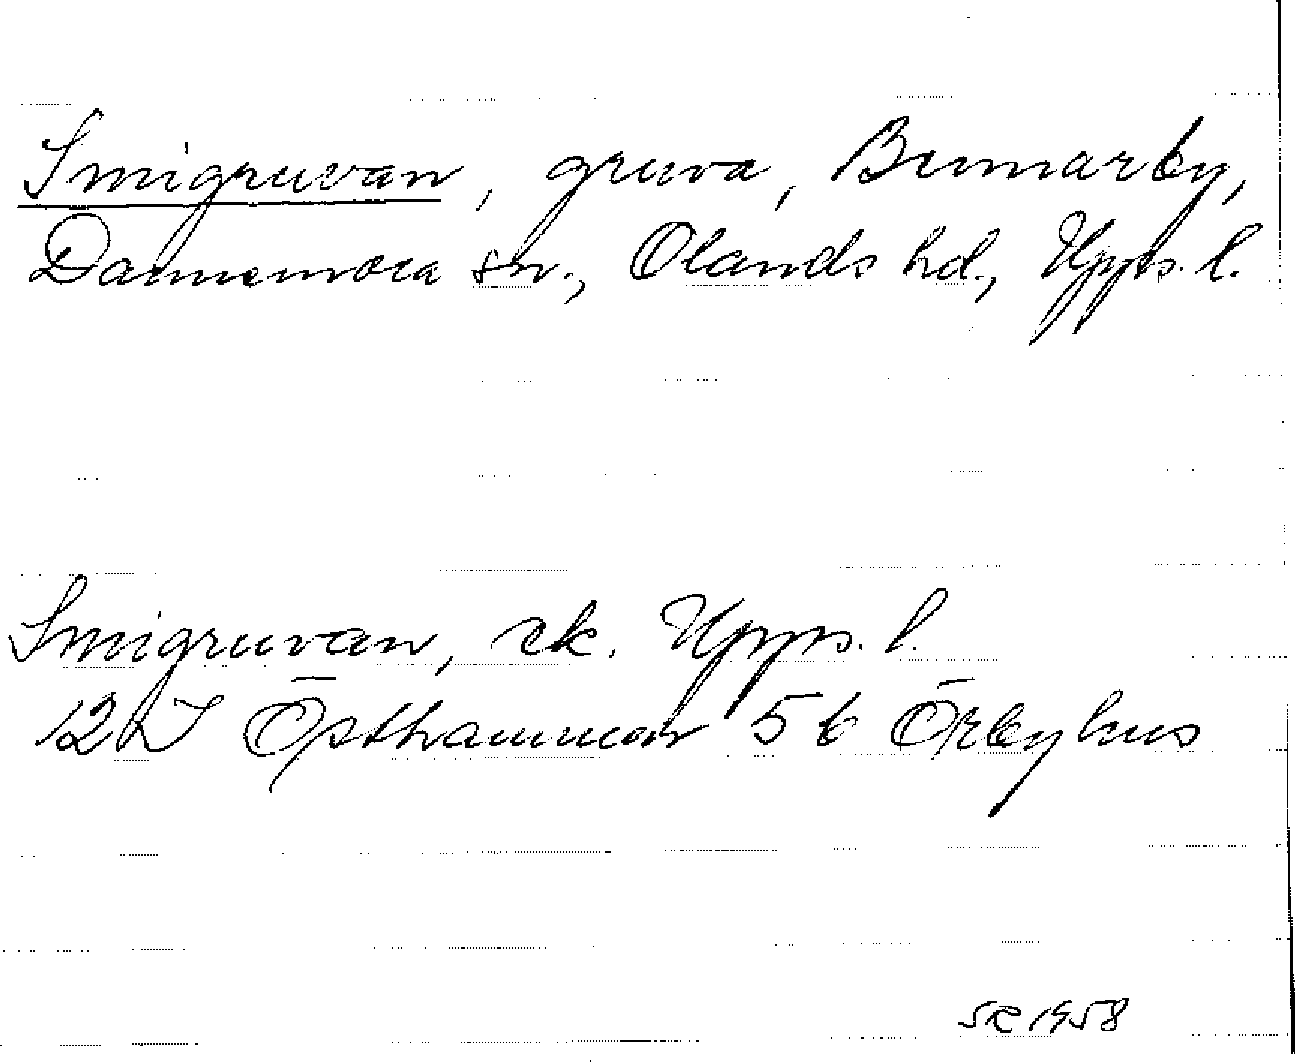 Smigruvan, gruva, Bumarby,
Dannemora sn., Olands hd., Upps. l.
Smigruvan, ek. Upps. l.
12 I Östhammar 5b Örbyhus
SR 1958